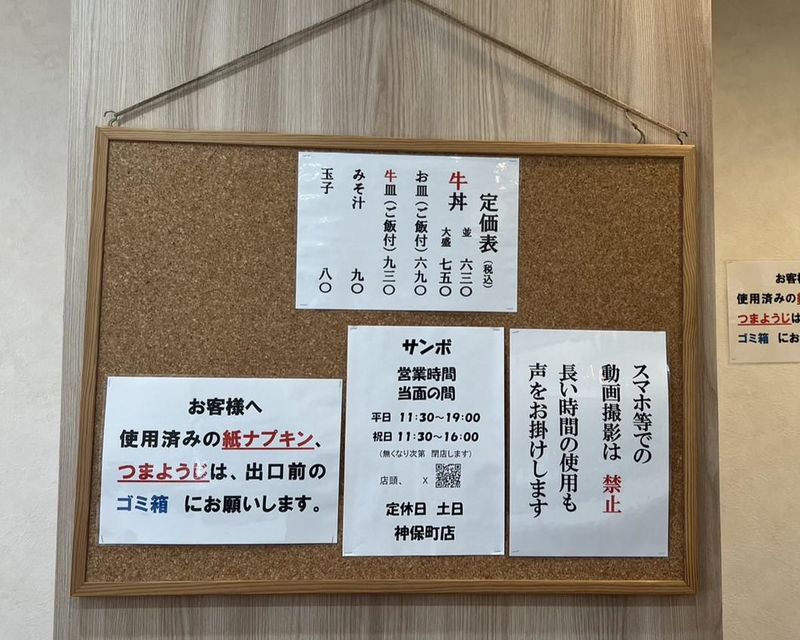 定価表（税込）
牛丼
並 六三〇
大盛 七五〇
お皿（ご飯付）六九〇
牛皿（ご飯付）九三〇
みそ汁 九〇
玉子 八〇
お客様へ
使用済みの紙ナプキン、
つまようじは、出口前の
ゴミ箱 にお願いします。
サンボ
営業時間
当面の間
平日 11:30～19:00
祝日 11:30～16:00
（無くなり次第 閉店します）
店頭、 X
定休日 土日
神保町店
スマホ等での
動画撮影は 禁止
長い時間の使用も
声をお掛けします
お客
使用済みの
つまようじは
ゴミ箱 にお